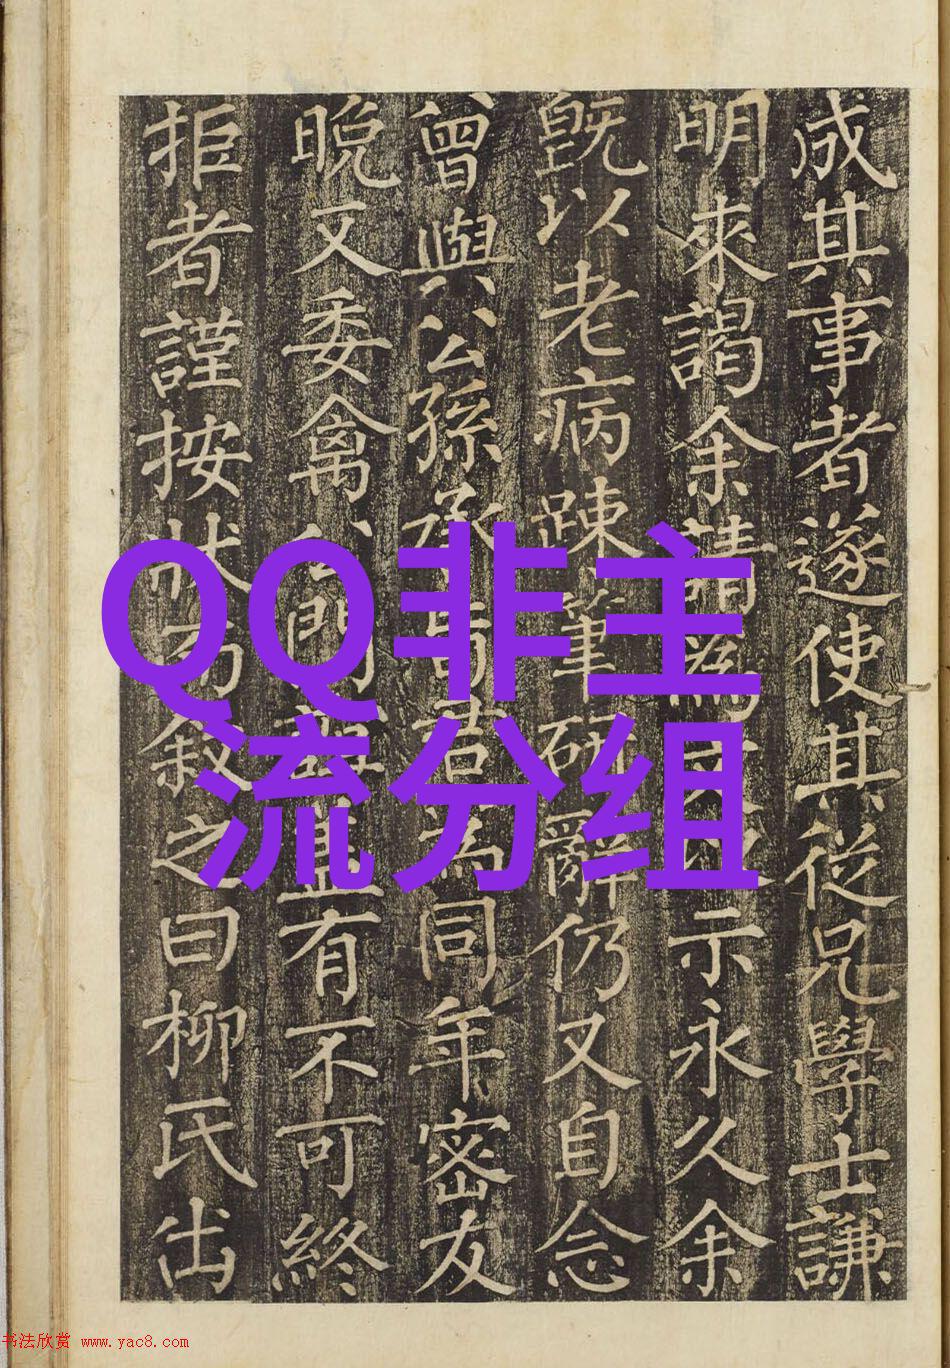 成其事者遂使其從兄學士謙
明來謁余請為示永久余
旣以老病踈筆硏辭仍又自念
曾與公孫承昔君為同年密友
晩又委禽有不可終
拒者謹按狀而叙之曰柳氏出
QQ非主
流分组
书法欣赏 www.yac8.com